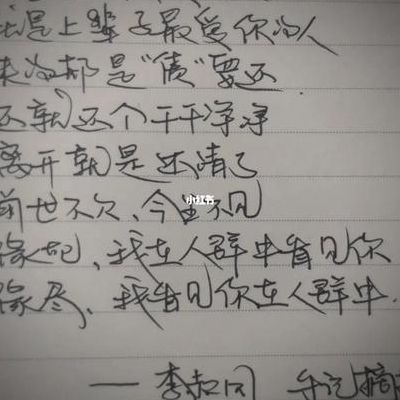 我是上辈子最爱你的人
来的都是“债”要还
还就还个干干净净
离开就是还清了
前世不欠、今生不见
小红书
缘起、我在人群中看见你
缘尽、我看见你在人群中.
——李叔同 手记摘